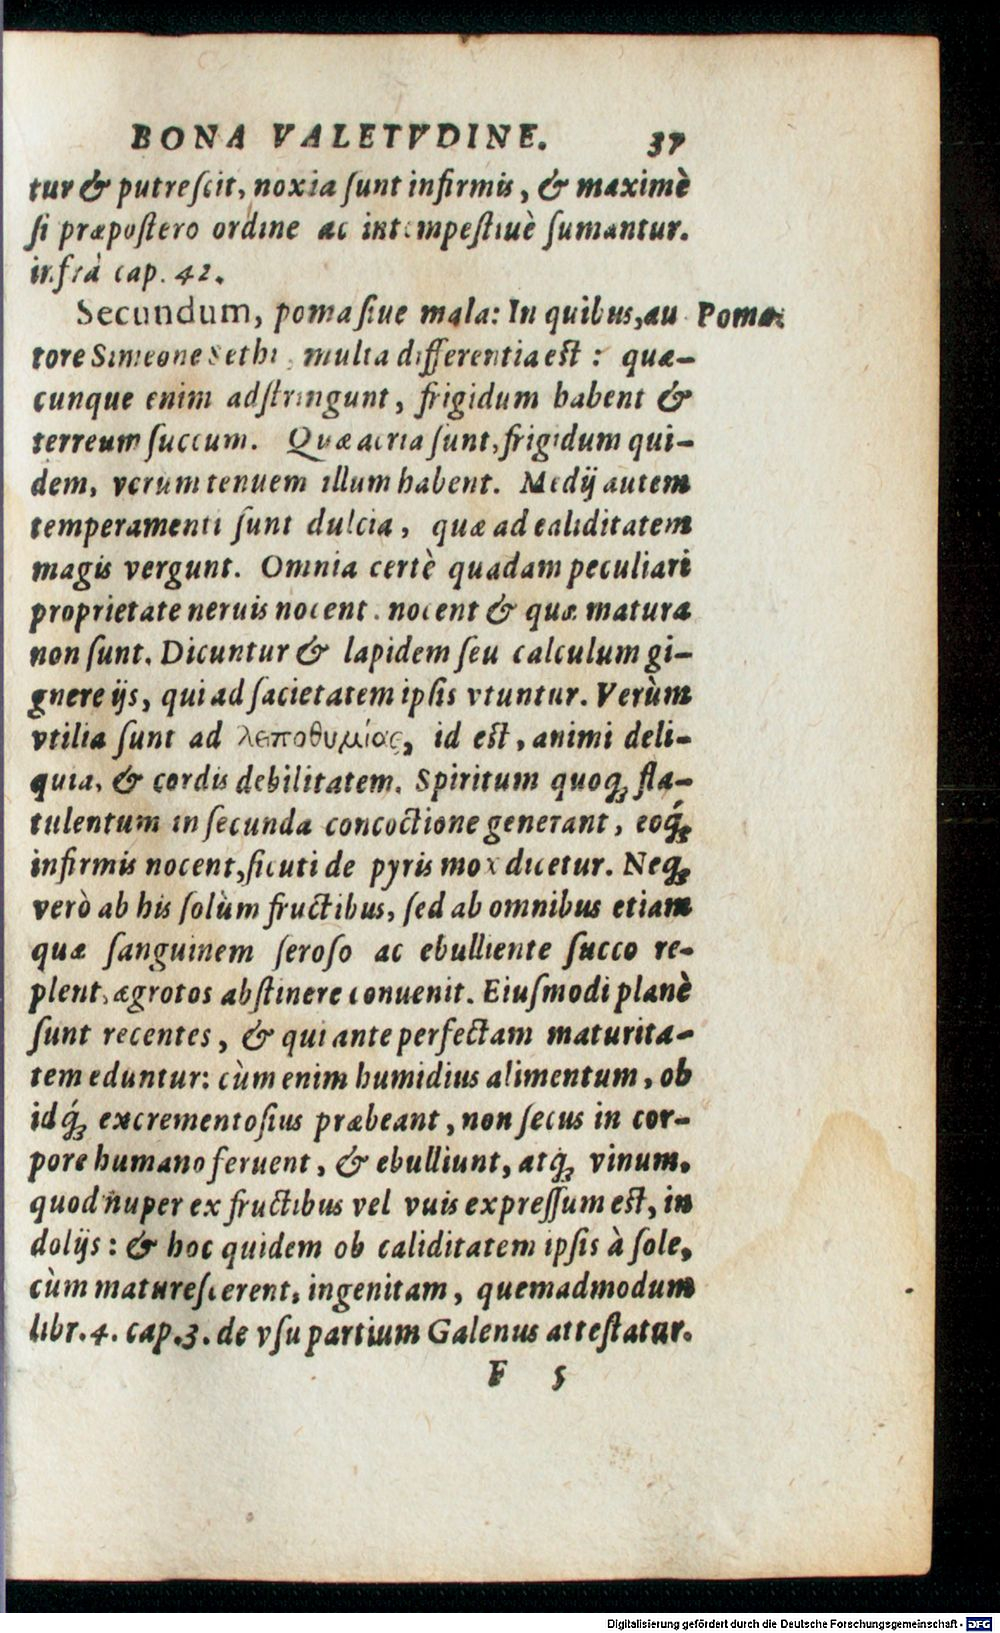 BONA VALETVDINE. 37
tur & putreſcit, noxia ſunt infirmis, & maximè
ſi præpoſtero ordine ac intempeſtiuè ſumantur.
infrà cap. 42.
Secundum, poma ſiue mala: In quibus, au Poma.
tore Simeone Sethi, multa differentia eſt : quæ-
cunque enim adſtringunt, frigidum habent &
terreum ſuccum. Quæ acria ſunt, frigidum qui-
dem, verum tenuem illum habent. Medij autem
temperamenti ſunt dulcia, quæ ad caliditatem
magis vergunt. Omnia certè quadam peculiari
proprietate neruis nocent. nocent & quæ matura
non ſunt. Dicuntur & lapidem ſeu calculum gi-
gnere ijs, qui ad ſacietatem ipſis vtuntur. Verùm
vtilia ſunt ad λειποθυμίας, id eſt, animi deli-
quia, & cordis debilitatem. Spiritum quoq; fla-
tulentum in ſecunda concoctione generant, eoq́;
infirmis nocent, ſicuti de pyris mox dicetur. Neq;
verò ab his ſolùm fructibus, ſed ab omnibus etiam
quæ ſanguinem ſeroſo ac ebulliente ſucco re-
plent, ægrotos abſtinere conuenit. Eiuſmodi planè
ſunt recentes, & qui ante perfectam maturita-
tem eduntur: cùm enim humidius alimentum, ob
idq́; excrementoſius præbeant, non ſecus in cor-
pore humano feruent, & ebulliunt, atq; vinum.
quod nuper ex fructibus vel vuis expreſſum eſt, in
dolijs : & hoc quidem ob caliditatem ipſis à ſole,
cùm matureſcerent, ingenitam, quemadmodum
libr. 4. cap. 3. de vſu partium Galenus atteſtatur.
F 5
Digitalisierung gefördert durch die Deutsche Forschungsgemeinschaft - DFG